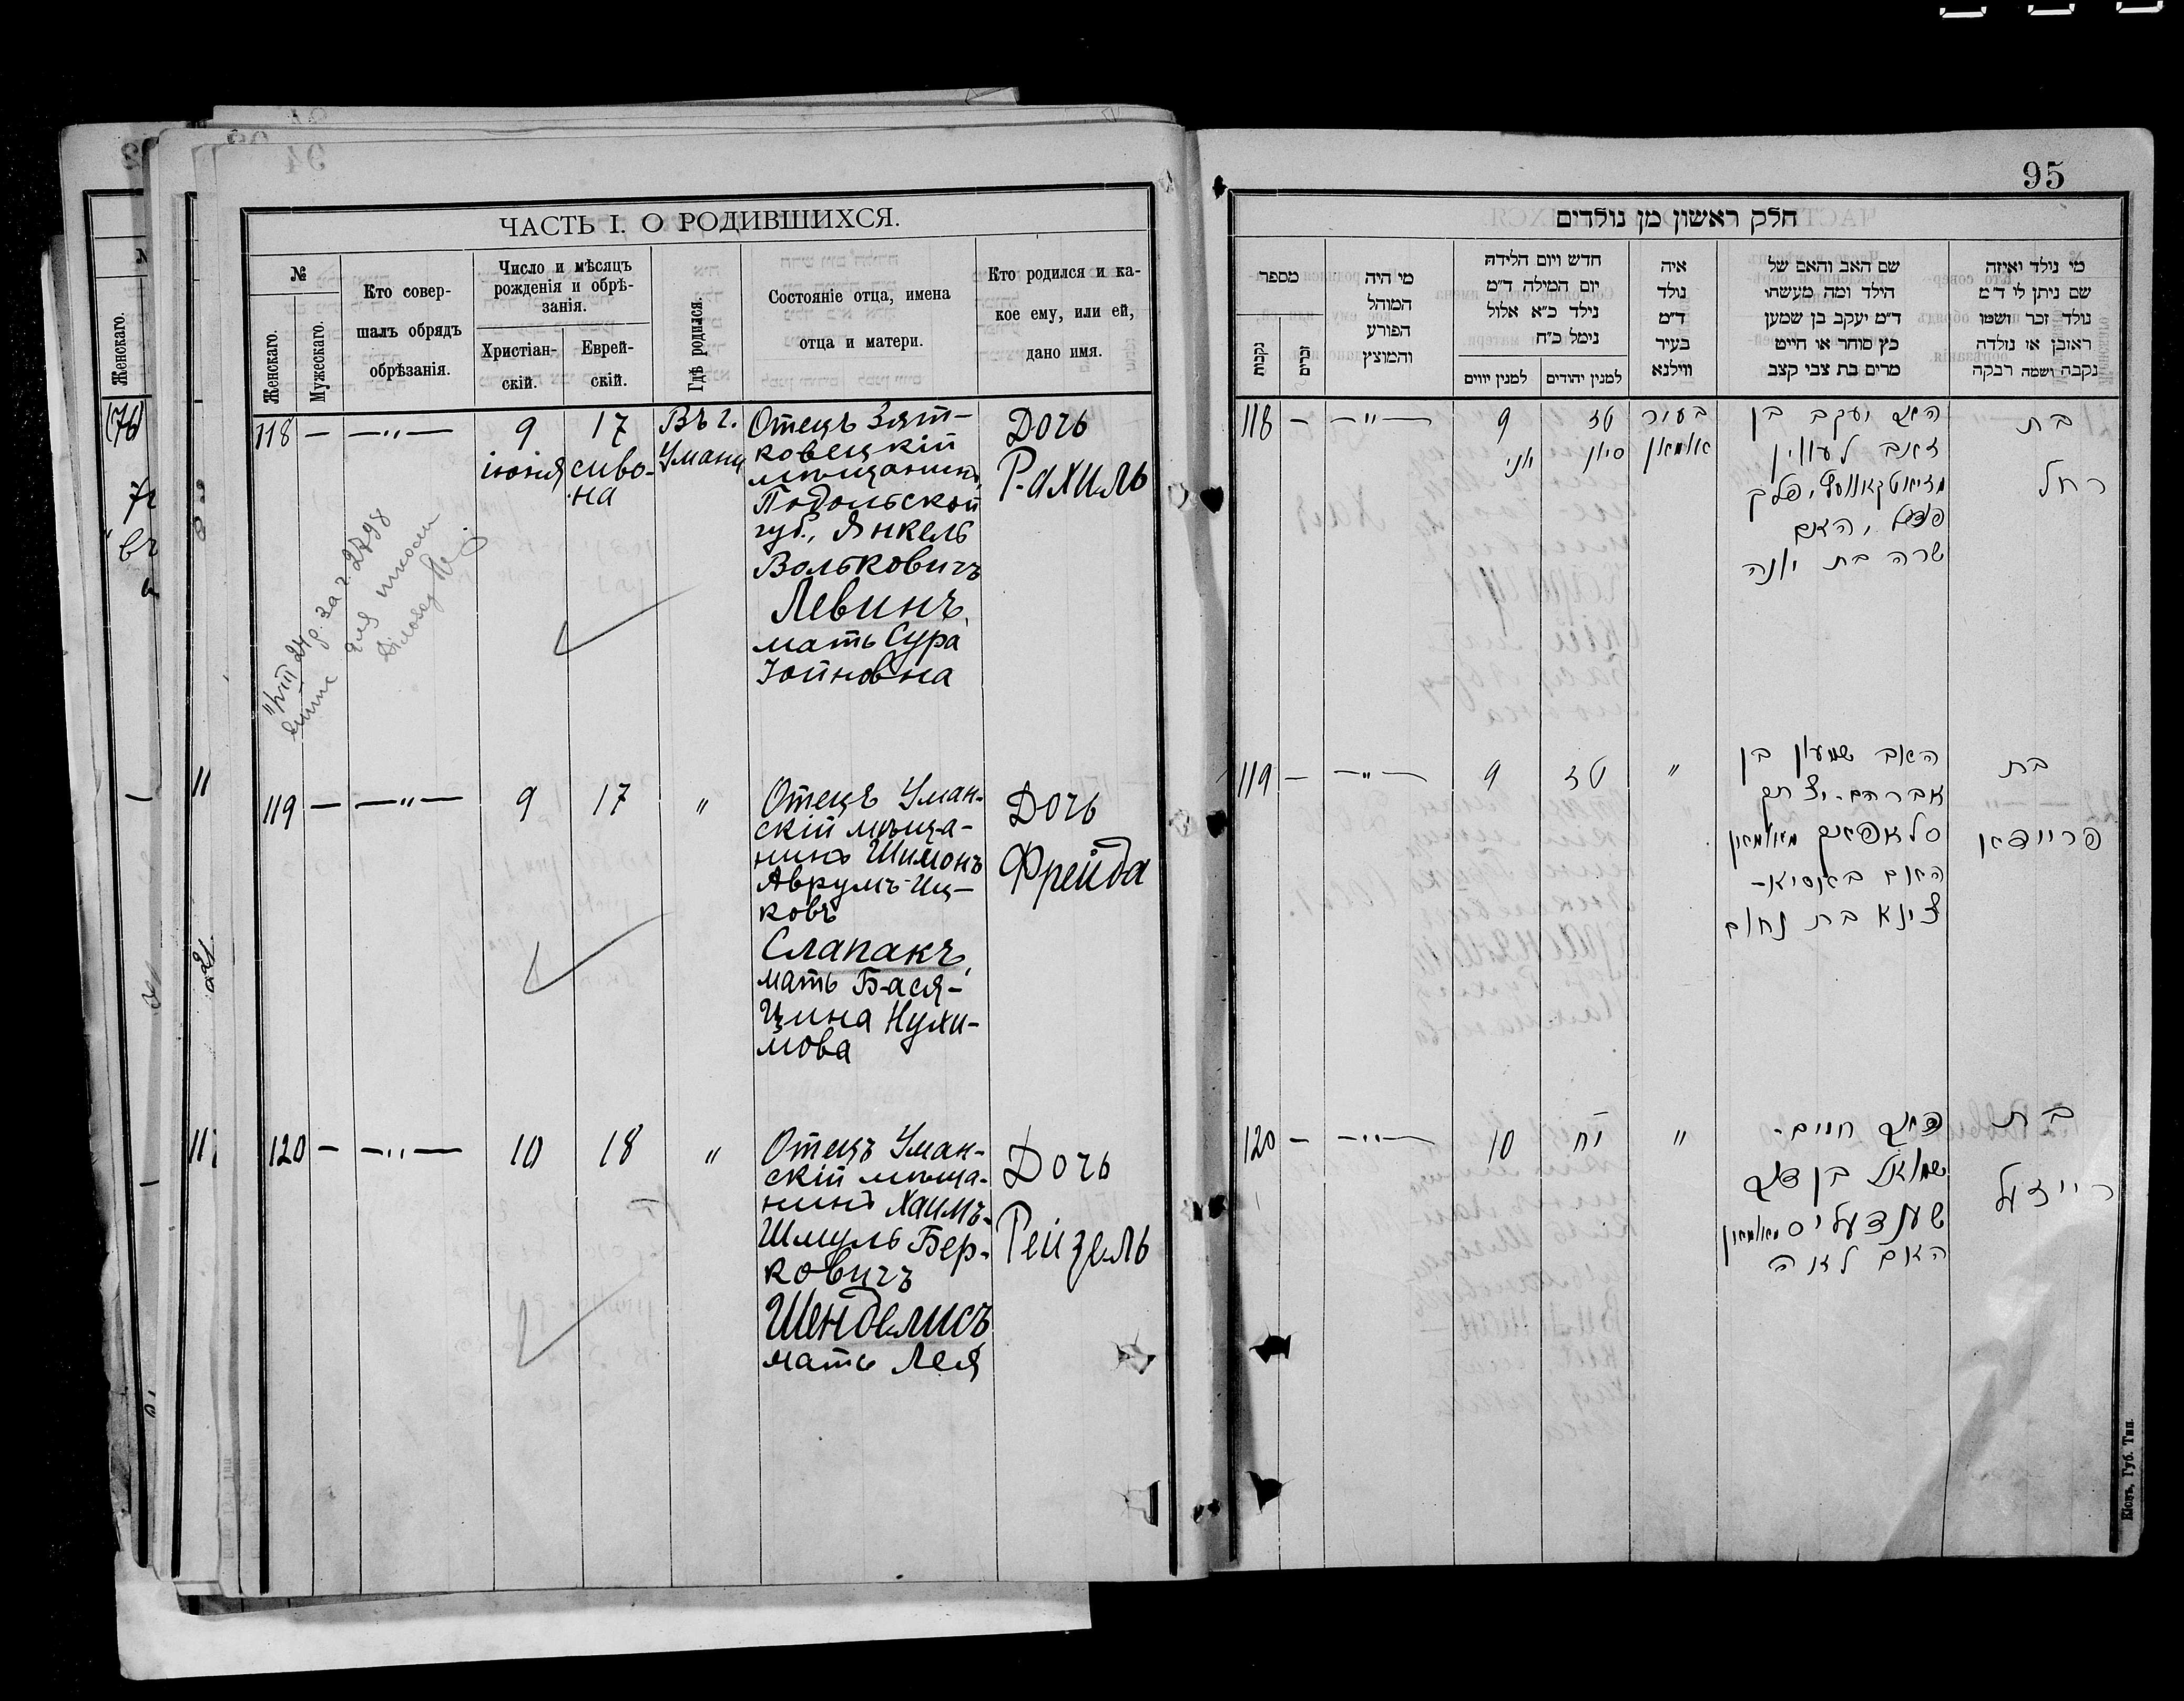 95
ЧАСТЬ I. О РОДИВШИХСЯ.
№
Женскаго.
Мужескаго.
Кто совер-
шалъ обрядъ
обрѣзанія.
Число и мѣсяцъ
рожденія и обрѣ-
занія.
Христіан-
скій.
Еврей-
скій.
Гдѣ родился.
Состояніе отца, имена
отца и матери.
Кто родился и ка-
кое ему, или ей,
дано имя.
118 — —〃— 9 17 Въ г.
іюня сиво-
на
Умани
Отецъ Зят-
ковецкій
мѣщанинъ,
Подольской
губ., Янкель
Вольковичъ
Левинъ,
мать Сура
Іойновна
Дочь
Рахиль
119 — —〃— 9 17 〃
Отецъ Уман-
скій мѣща-
нинъ Шимонъ
Аврумъ-Иц-
ковъ
Слапакъ,
мать Бася-
Цина Нухи-
мова
Дочь
Фрейда
120 — —〃— 10 18 〃
Отецъ Уман-
скій мѣща-
нинъ Хаимъ-
Шмуль Бер-
ковичъ
Шенделисъ
мать Лея
Дочь
Рейзель
חלק ראשון מן נולדים
מספר
נקבות
זכרים
מי היה
המוהל
הפורע
והמוצץ
חדש ויום הלידה
יום המילה ד״מ
נילד כ״א אלול
נימל כ״ח
למנין יווים
למנין יהודים
איה
נולד
ד״מ
בעיר
ווילנא
שם האב והאם של
הילד ומה מעשתו
ד״מ יעקב בן שמען
כץ סוחר או חייט
מרים בת צבי קצב
מי נולד ואיזה
שם ניתן לי ד״מ
נולד זכר ושמו
ראובן או נולדה
נקבה ושמה רבקה
118 — —〃— 9 יוני טז סיון בעיר אומאן
האב יעקב בן
זאב לעווין
האם
שרה בת יונה
בת
רחל
119 — —〃— 9 טז 〃
האב שמעון בן
אברהם-יצחק
סלאפאק מאומאן
האם באסיא-
צינא בת נחום
בת
פריידא
120 — —〃— 10 יח 〃
האב חיים-
שמואל בן
שענדעליס מאומאן
האם לאה
בת
רייזעל
Кіевъ, Губ. Тип.